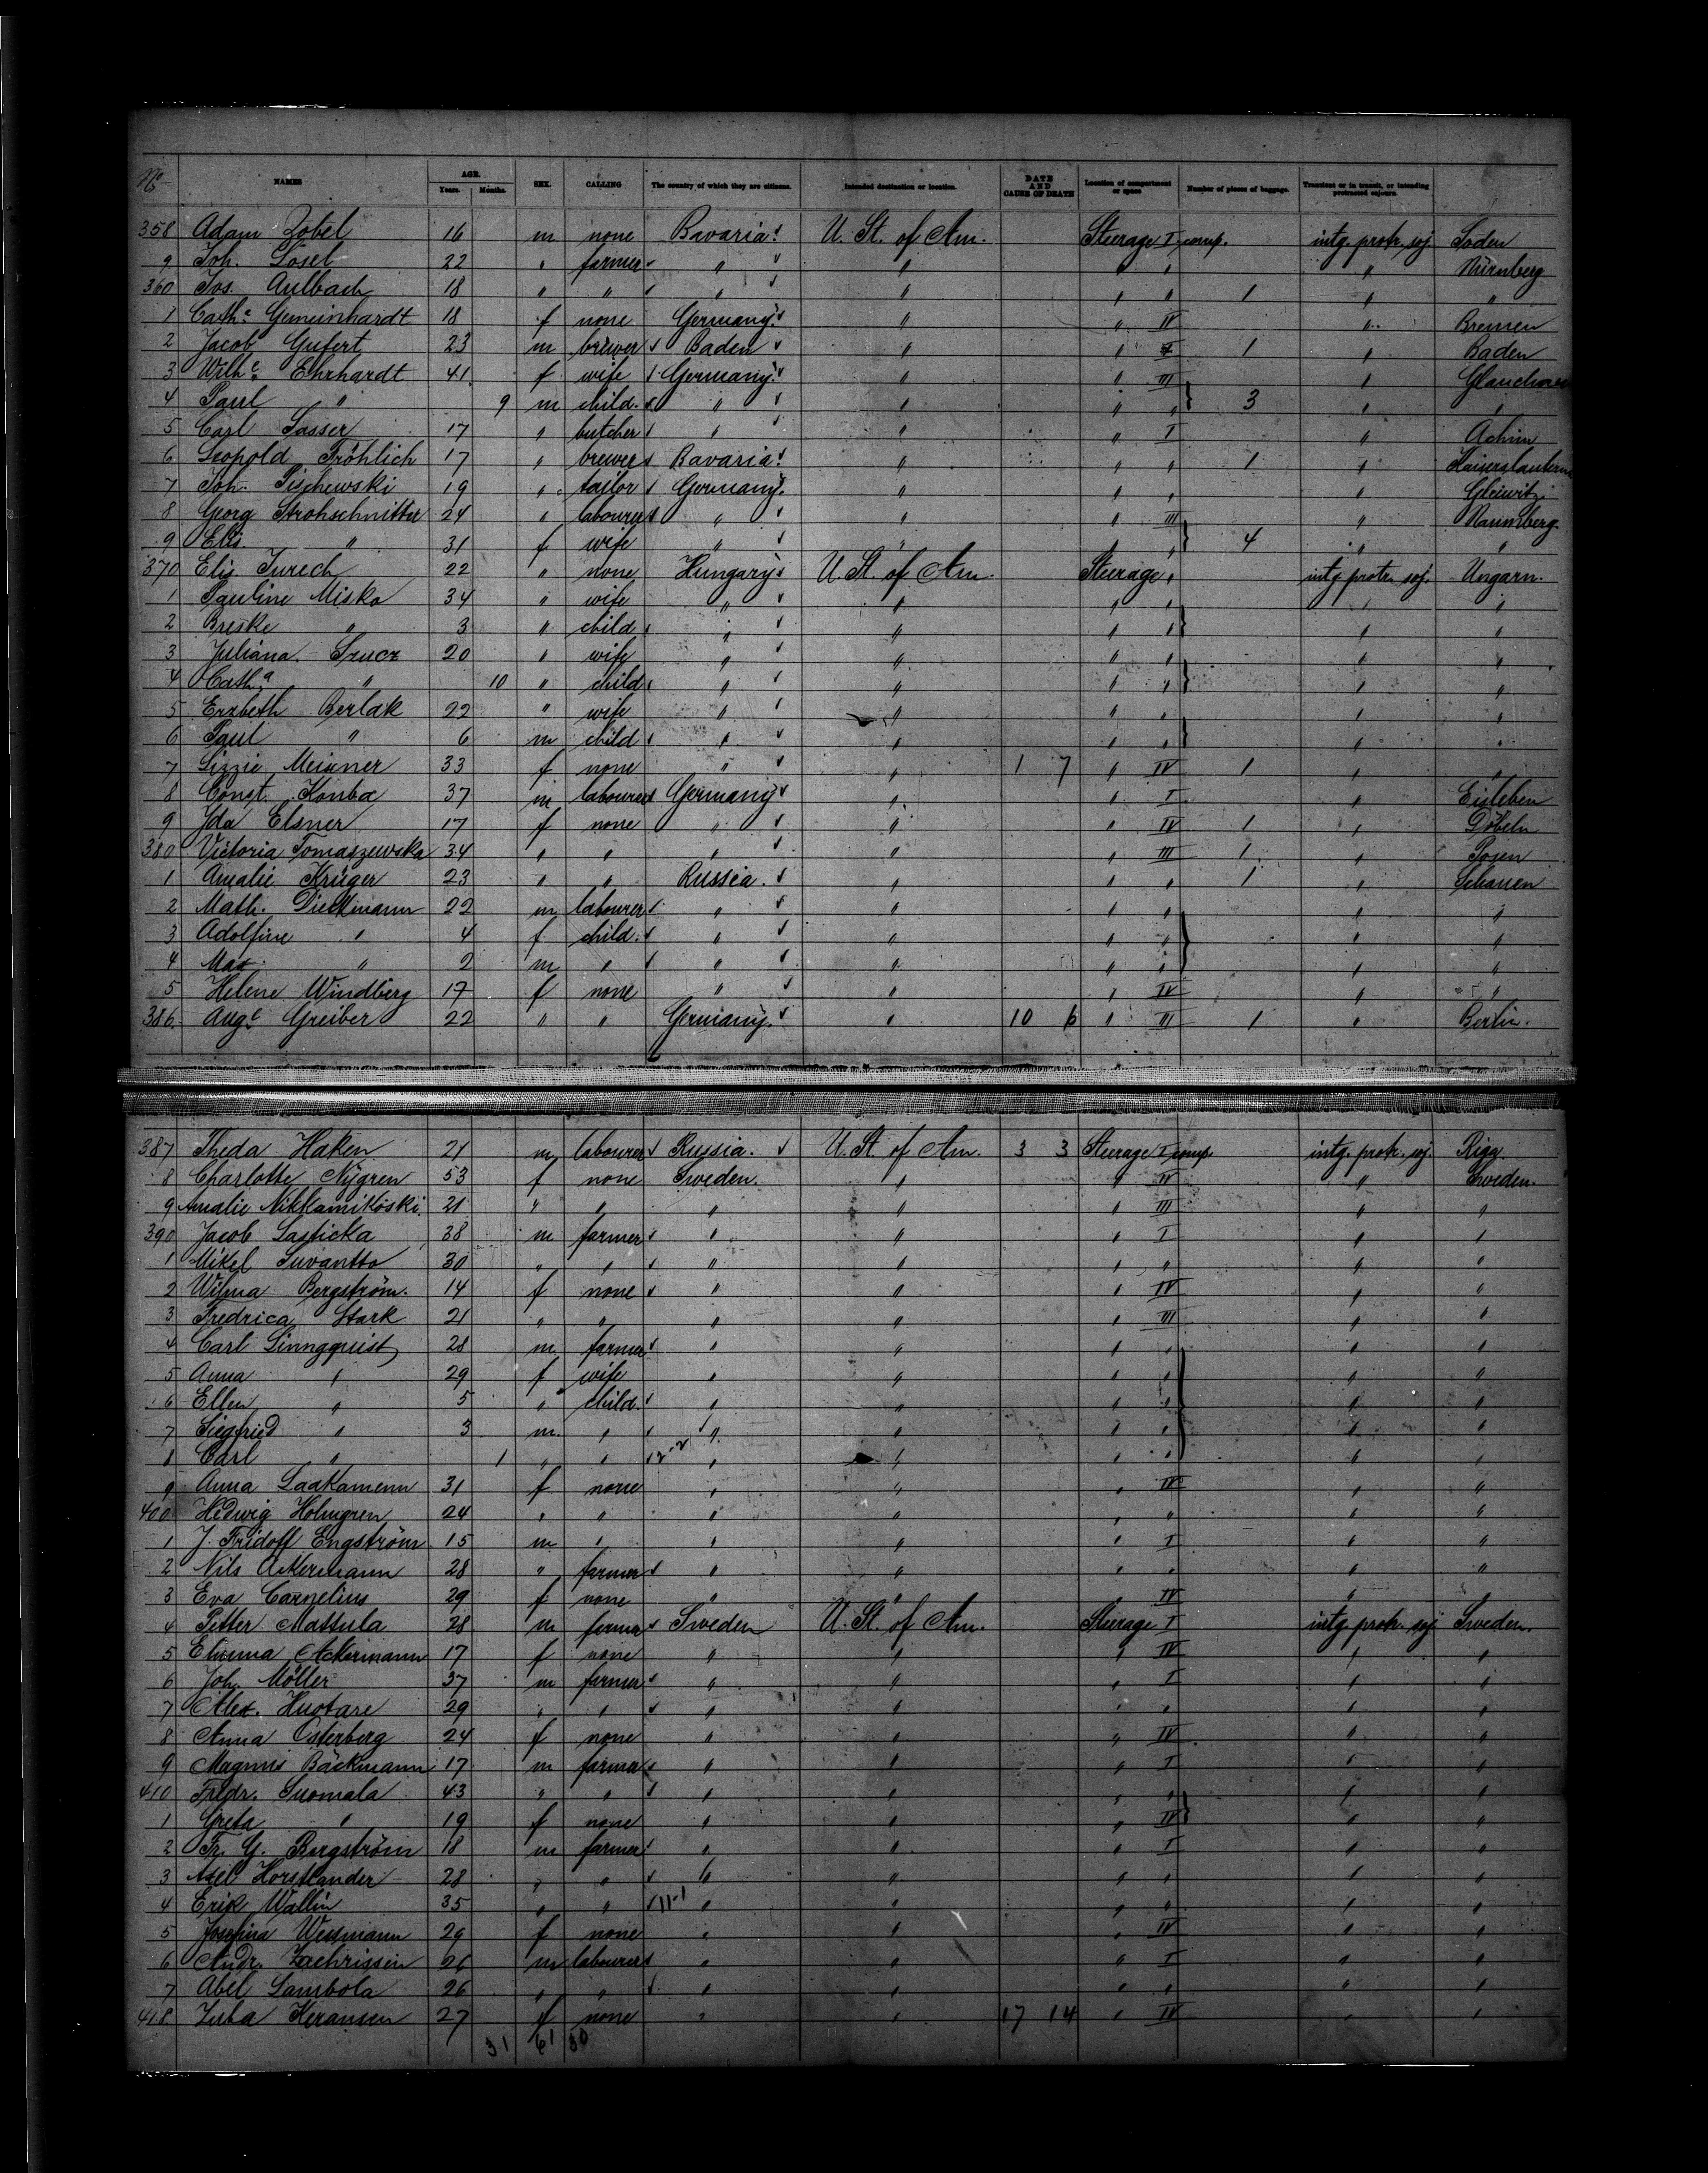 No NAMES AGE. Years. Months. SEX. CALLING The country of which they are citizens. Intended destination or location. DATE AND CAUSE OF DEATH Location of compartment or space Number of pieces of baggage. Transient or in transit, or intending protracted sojourn.
358 Adam Zobel 16 m none Bavaria. U. St. of Am. Steerage I comp. intg. protr. soj. Soden
9 Joh. Lösel 22 " farmer " " " " " Nürnberg
360 Jos. Aulbach 18 " " " " " " 1 " "
1 Cathe Gemeinhardt 18 f none Germany. " " IV " Bremen
2 Jacob Gufert 23 m brewer Baden " " 1 " Baden
3 Wilhe Ehrhardt 41 f wife Germany. " " III " Glauchau
4 Paul " 9 m child. " " " " 3 " "
5 Carl Sasser 17 " butcher " " " I " Achim
6 Leopold Fröhlich 17 " brewer Bavaria. " " " 1 " Kaiserslautern
7 Joh. Pischewski 19 " tailor Germany. " " " " Gleiwitz
8 Georg Strohschnitter 24 " labourer " " " III " Naumberg.
9 Elis. " 31 f wife " " " " 4 " "
370 Elis. Turech 22 " none Hungary U. St. of Am. Steerage " intg. protr. soj. Ungarn.
1 Pauline Misko 34 " wife " " " " " "
2 Breske " 3 " child " " " " " "
3 Juliana Szucz 20 " wife " " " " " "
4 Catha " 10 " child " " " " " "
5 Erzbeth Berlak 22 " wife " " " " " "
6 Paul " 6 m child " " " " " "
7 Lizzie Meixner 33 f none " " 1 7 " IV 1 " "
8 Const. Konba 37 m labourer Germany " " I " Eisleben
9 Ida Elsner 17 f none " " " IV 1 " Döbeln
380 Victoria Tomaszewska 34 " " " " " III 1 " Posen
1 Amalie Krüger 23 " " Russia. " " " 1 " Schauen
2 Math. Dieckmann 22 m labourer " " " " " "
3 Adolfine " 4 f child. " " " " " "
4 Max " 2 m " " " " " " "
5 Helene Windberg 17 f none " " " IV " "
386 Auge Greiber 22 " " Germany. " 10 6 " III 1 " Berlin.
387 Theda Haken 21 m labourer Russia. U. St. of Am. 3 3 Steerage I comp. intg. protr. soj. Riga.
8 Charlotte Nygren 53 f none Sweden. " " IV " Sweden.
9 Amalie Nikkamikoski 21 " " " " " III " "
390 Jacob Lasticka 38 m farmer " " " I " "
1 Mikel Suvantto 30 " " " " " " " "
2 Wilma Bergström. 14 f none " " " IV " "
3 Fredrica Stark 21 " " " " " III " "
4 Carl Linngquist 28 m farmer " " " " " "
5 Anna " 29 f wife " " " " " "
6 Ellen " 5 " child. " " " " " "
7 Siegfried " 3 m. " " " " " " "
8 Carl " 1 " " 12-2 " " " " " "
9 Anna Laakamenn 31 f none " " " IV " "
400 Hedwig Holmgren 24 " " " " " " " "
1 J. Fridoff Engström 15 m " " " " I " "
2 Nils Ackermann 28 " farmer " " " " " "
3 Eva Carnelius 29 f none " " " IV " "
4 Petter Mattula 28 m farmer Sweden U. St. of Am. Steerage I intg. protr. soj Sweden.
5 Emma Ackermann 17 f none " " " IV " "
6 Joh. Möller 37 m farmer " " " I " "
7 Alex. Huotare 29 " " " " " " " "
8 Anna Österberg 24 f none " " " IV " "
9 Magnus Bäckmann 17 m farmer " " " I " "
410 Fredr. Suomala 43 " " " " " " " "
1 Greta " 19 f none " " " IV " "
2 Fr. G. Bergström 18 m farmer " " " I " "
3 Axel Horstlander 28 " " " " " " " "
4 Erik Wallin 35 " " 11-1 " " " " " "
5 Josefina Wessmann 29 f none " " " IV " "
6 Andr. Zachrissin 26 m labourer " " " I " "
7 Abel Lambola 26 " " " " " " " "
418 Keransen 27 f none " " 17 14 " IV " "
31 61 30